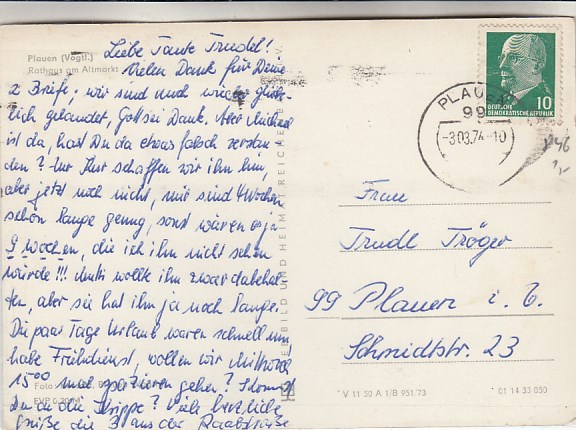 Plauen (Vogtl.)
Rathaus am Altmarkt
Liebe Tante Trudel!
Vielen Dank für Deine
2 Briefe; wir sind noch wieder glück-
lich gelandet, Gott sei Dank. Aber Michael
ist da, hast Du da etwas falsch verstan
den? Zur Kur schaffen wir ihn hin,
aber jetzt noch nicht, mir sind 4 Wochen
schon lange genug, sonst wären es ja
9 Wochen, die ich ihn nicht sehen
würde!!! Mutti wollte ihn zwar dabehal-
ten, aber sie hat ihn ja noch lange.
Die paar Tage Urlaub waren schnell um
habe Frühdienst, wollen wir Mittwoch
15⁰⁰ mal spazieren gehen? Kommst
Du an die Krippe? Viele herzliche
Grüße die 3 aus der
Foto
BILD UND HEIMAT REICHENBACH
DEUTSCHE
DEMOKRATISCHE REPUBLIK
10
PLAUEN
99
-3.03.74-10
Frau
Trudl Tröger
99 Plauen i. V.
Schmidtstr. 23
V 11 50 A 1/B 951/73
01 14 33 050